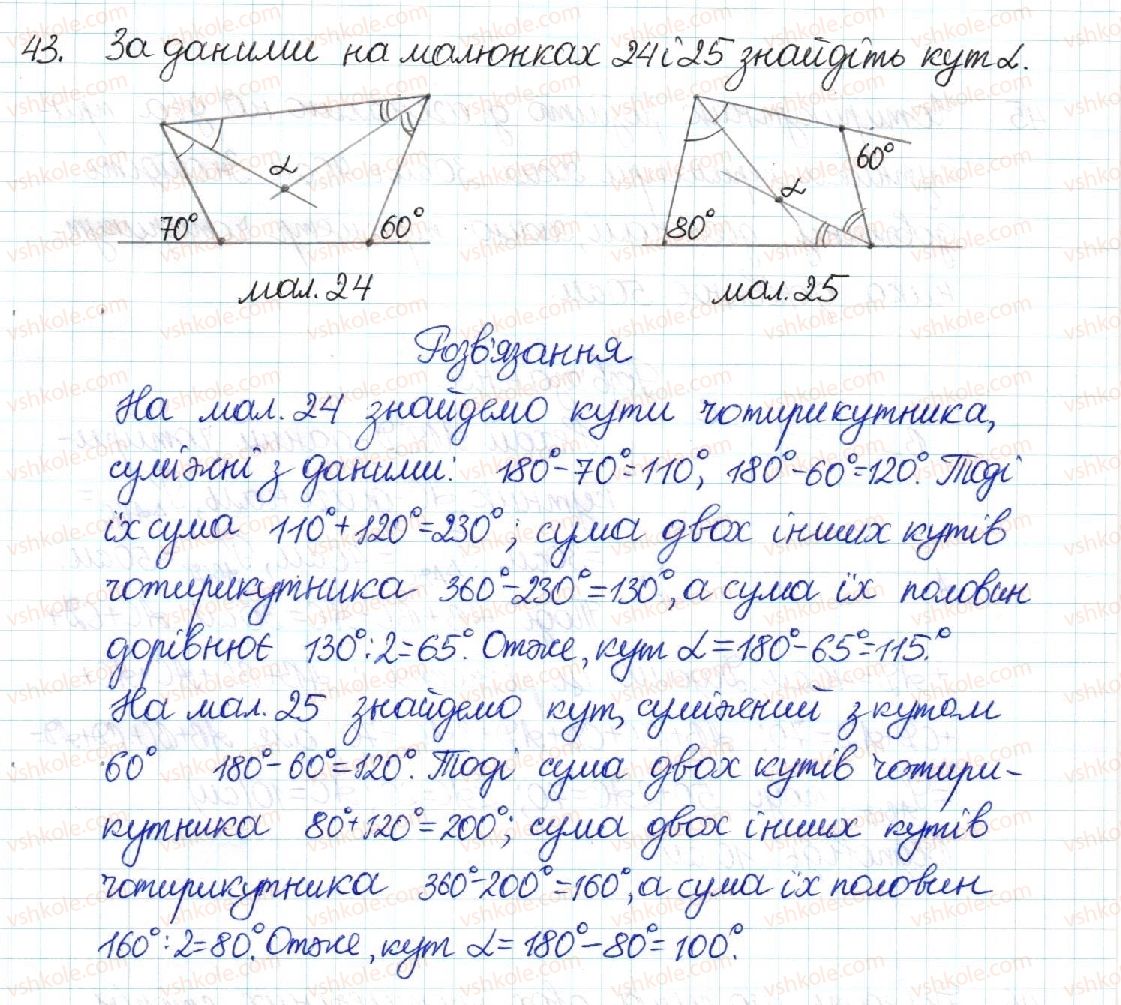 43. За даними на малюнках 24 і 25 знайдіть кут α.
α
70° 60°
мал. 24
60°
α
80°
мал. 25
Розв'язання
На мал. 24 знайдемо кути чотирикутника,
суміжні з даними: 180°-70°=110°, 180°-60°=120°. Тоді
їх сума 110°+120°=230°; сума двох інших кутів
чотирикутника 360°-230°=130°, а сума їх половин
дорівнює 130°:2=65°. Отже, кут α=180°-65°=115°.
На мал. 25 знайдемо кут, суміжний з кутом
60° 180°-60°=120°. Тоді сума двох кутів чотири-
кутника 80°+120°=200°; сума двох інших кутів
чотирикутника 360°-200°=160°, а сума їх половин
160°:2=80°. Отже, кут α=180°-80°=100°.